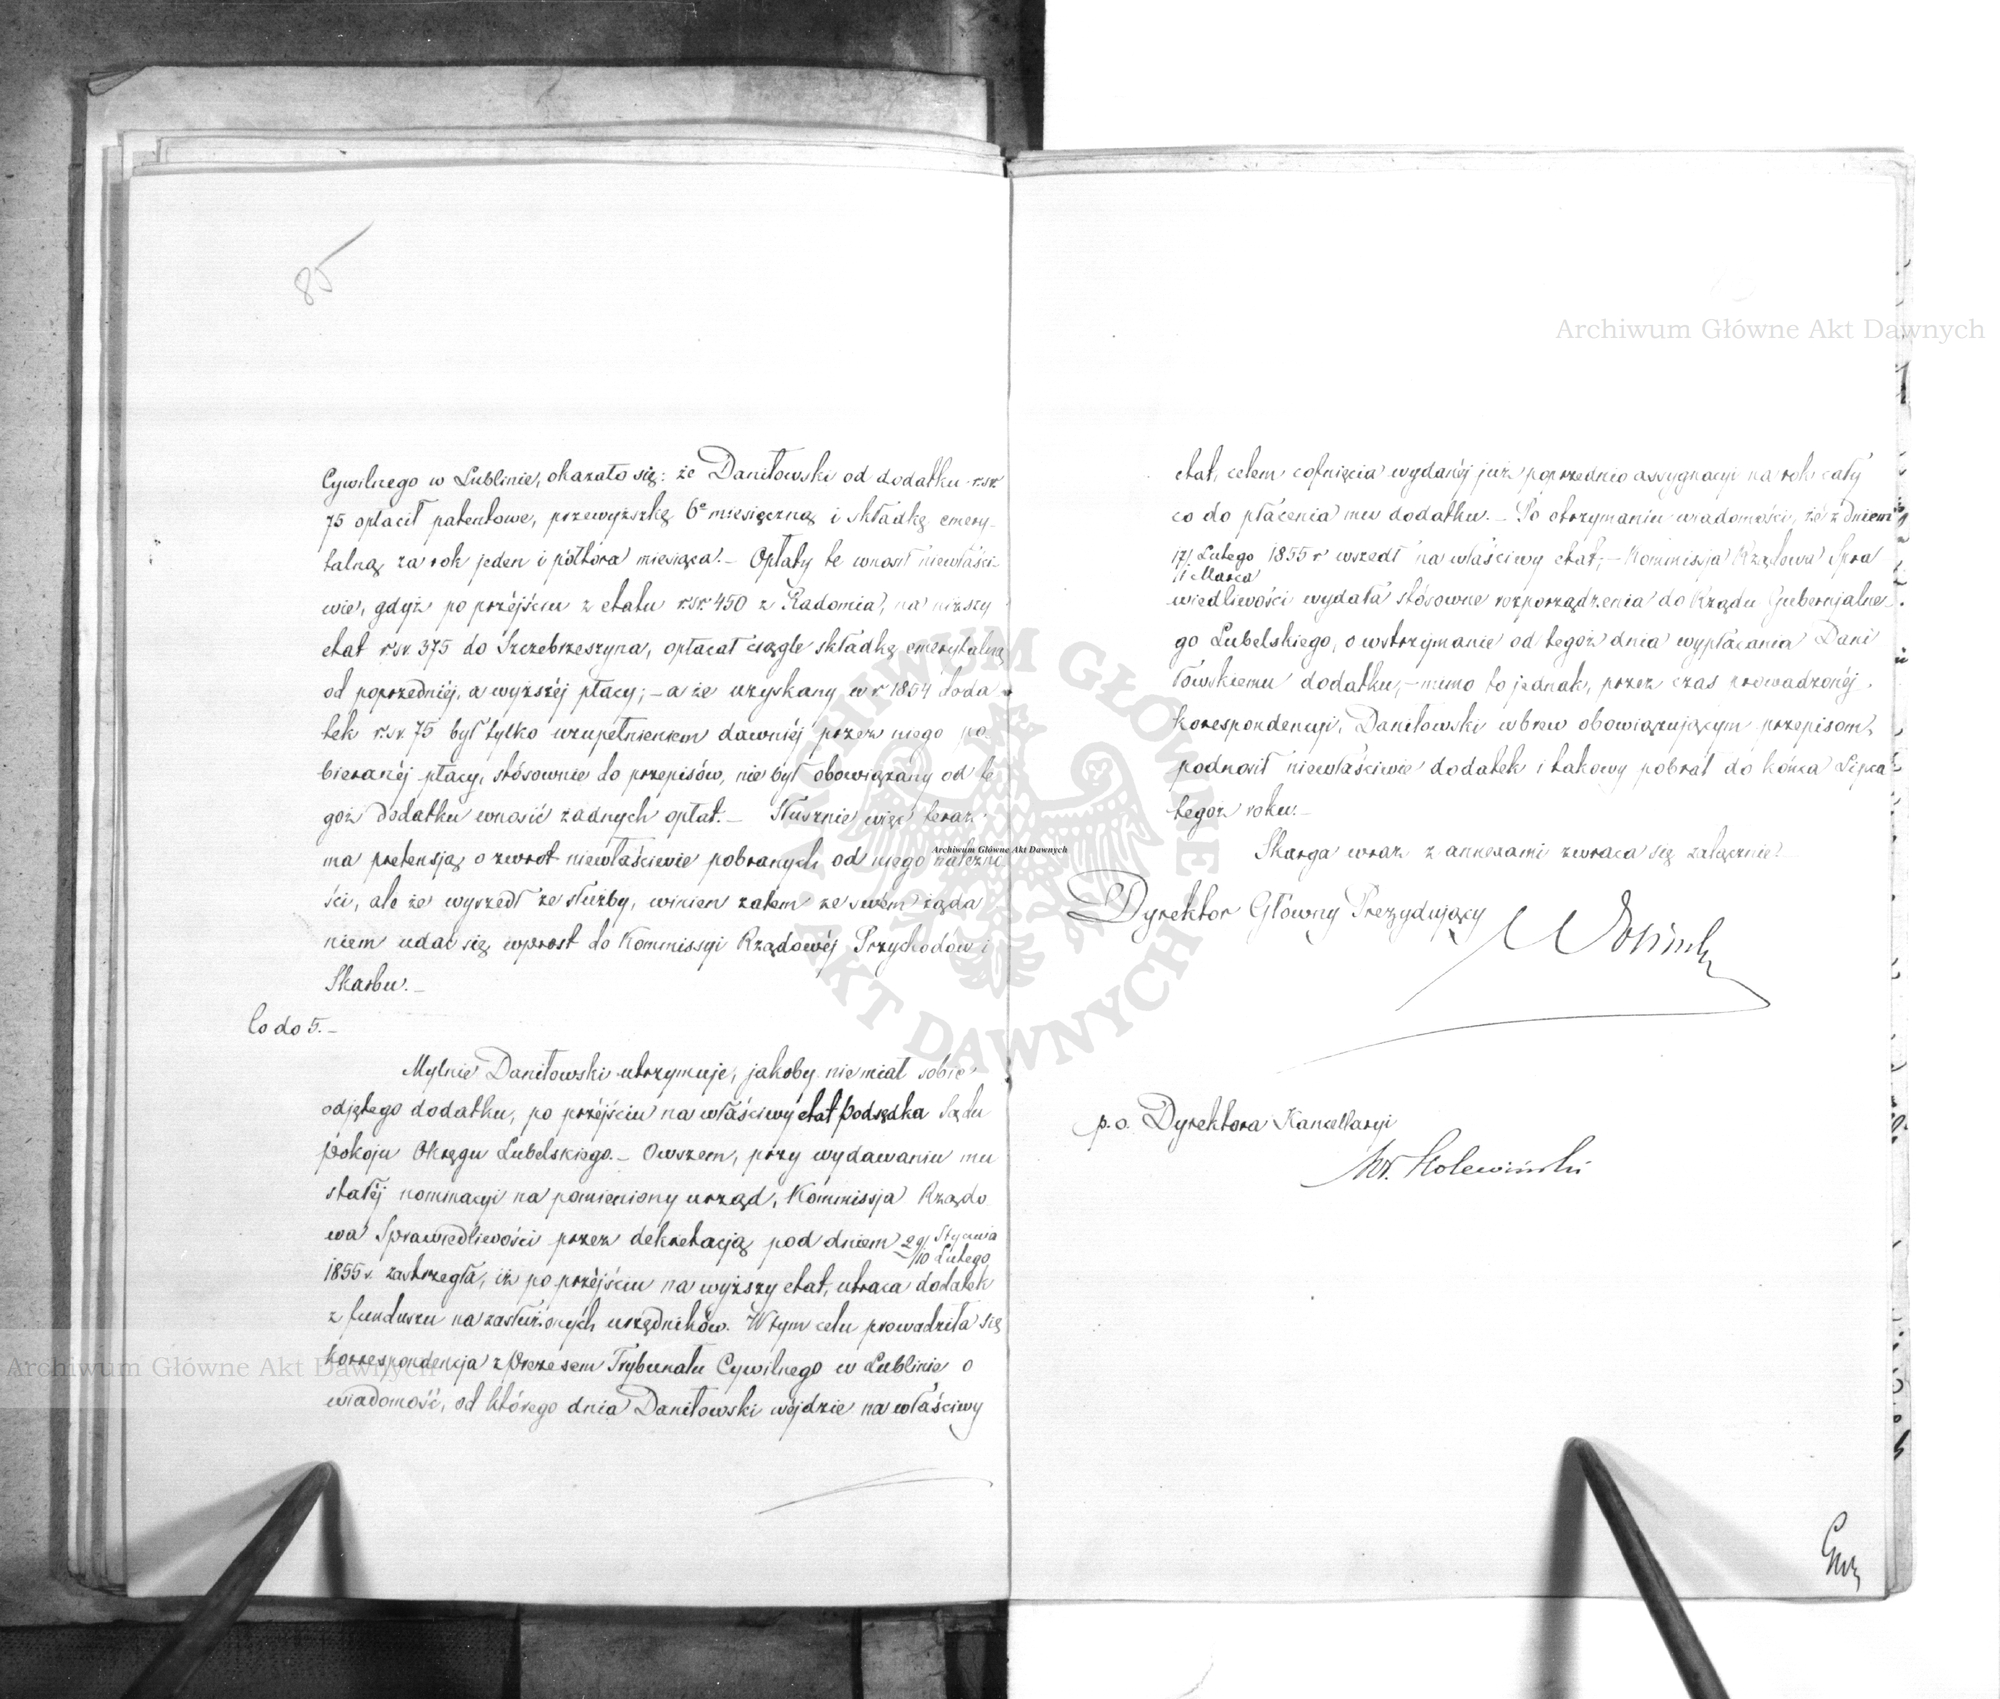 85
Cywilnego w Lublinie, okazało się: że Daniłowski od dodatku rsr.
75 opłacił patentowe, przewyżzkę 6º miesięczną i składkę emery-
talną za rok jeden i półtora miesiąca. – Opłaty te wnosił niewłaści-
wie, gdyż po przéjściu z etatu rsr. 450 z Radomia, na niższy
etat rsr. 375 do Szczebrzeszyna, opłacał ciągle składkę emerytalną
od poprzedniéj, a wyższéj płacy; – a że uzyskany w r. 1854 doda
tek rsr. 75 był tylko uzupełnieniem dawniéj przez niego po
bieranéj płacy, stósownie do przepisów, nie był obowiązany od te
goż dodatku wnosić żadnych opłat. – Słusznie więc teraz
ma pretensją o zwrot niewłaściwie pobranych od niego należno
ści, ale że wyszedł ze służby, winien zatem ze swém żąda
niem udać się wprost do Kommissyi Rządowéj Przychodów i
Skarbu. –
Co do 5. –
Mylnie Daniłowski utrzymuje, jakoby niemiał sobie
odjętego dodatku, po przéjściu na właściwy etat Podsędka Sądu
Pokoju Okręgu Lubelskiego. – Owszem, przy wydawaniu mu
stałéj nominacyi na pomieniony urząd, Kommissja Rządo
wa Sprawiedliwości przez dekretacją pod dniem 29/10 Stycznia/Lutego
1855 r. zastrzegła, iż po przéjściu na wyższy etat, utraca dodatek
z funduszu na zasłużonych urzędników. W tym celu prowadziła się
korrespondencja z Prezesem Trybunału Cywilnego w Lublinie o
wiadomość, od którego dnia Daniłowski wéjdzie na właściwy
etat, celem cofnięcia wydanéj już poprzednio assygnacyi na rok cały
co do płacenia mu dodatku. – Po otrzymaniu wiadomości, że z dniem
17/1 Lutego/Marca 1855 r. wszedł na właściwy etat; – Kommissja Rządowa Spra
wiedliwości wydała stósowne rozporządzenia do Rządu Gubernjalne-
go Lubelskiego, o wstrzymanie od tegoż dnia wypłacania Dani
łowskiemu dodatku, – mimo to jednak, przez czas prowadzonéj
korespondencyi, Daniłowski wbrew obowiązującym przepisom,
podnosił niewłaściwie dodatek i takowy pobrał do końca Lipca
tegoż roku. –
Skarga wraz z annexami zwraca się załącznie. –
Dyrektor Główny Prezydujący
p. o. Dyrektora Kancellaryi
Archiwum Główne Akt Dawnych
Archiwum Główne Akt Dawnych
Archiwum Główne Akt Dawnych
ARCHIWUM GŁÓWNE AKT DAWNYCH